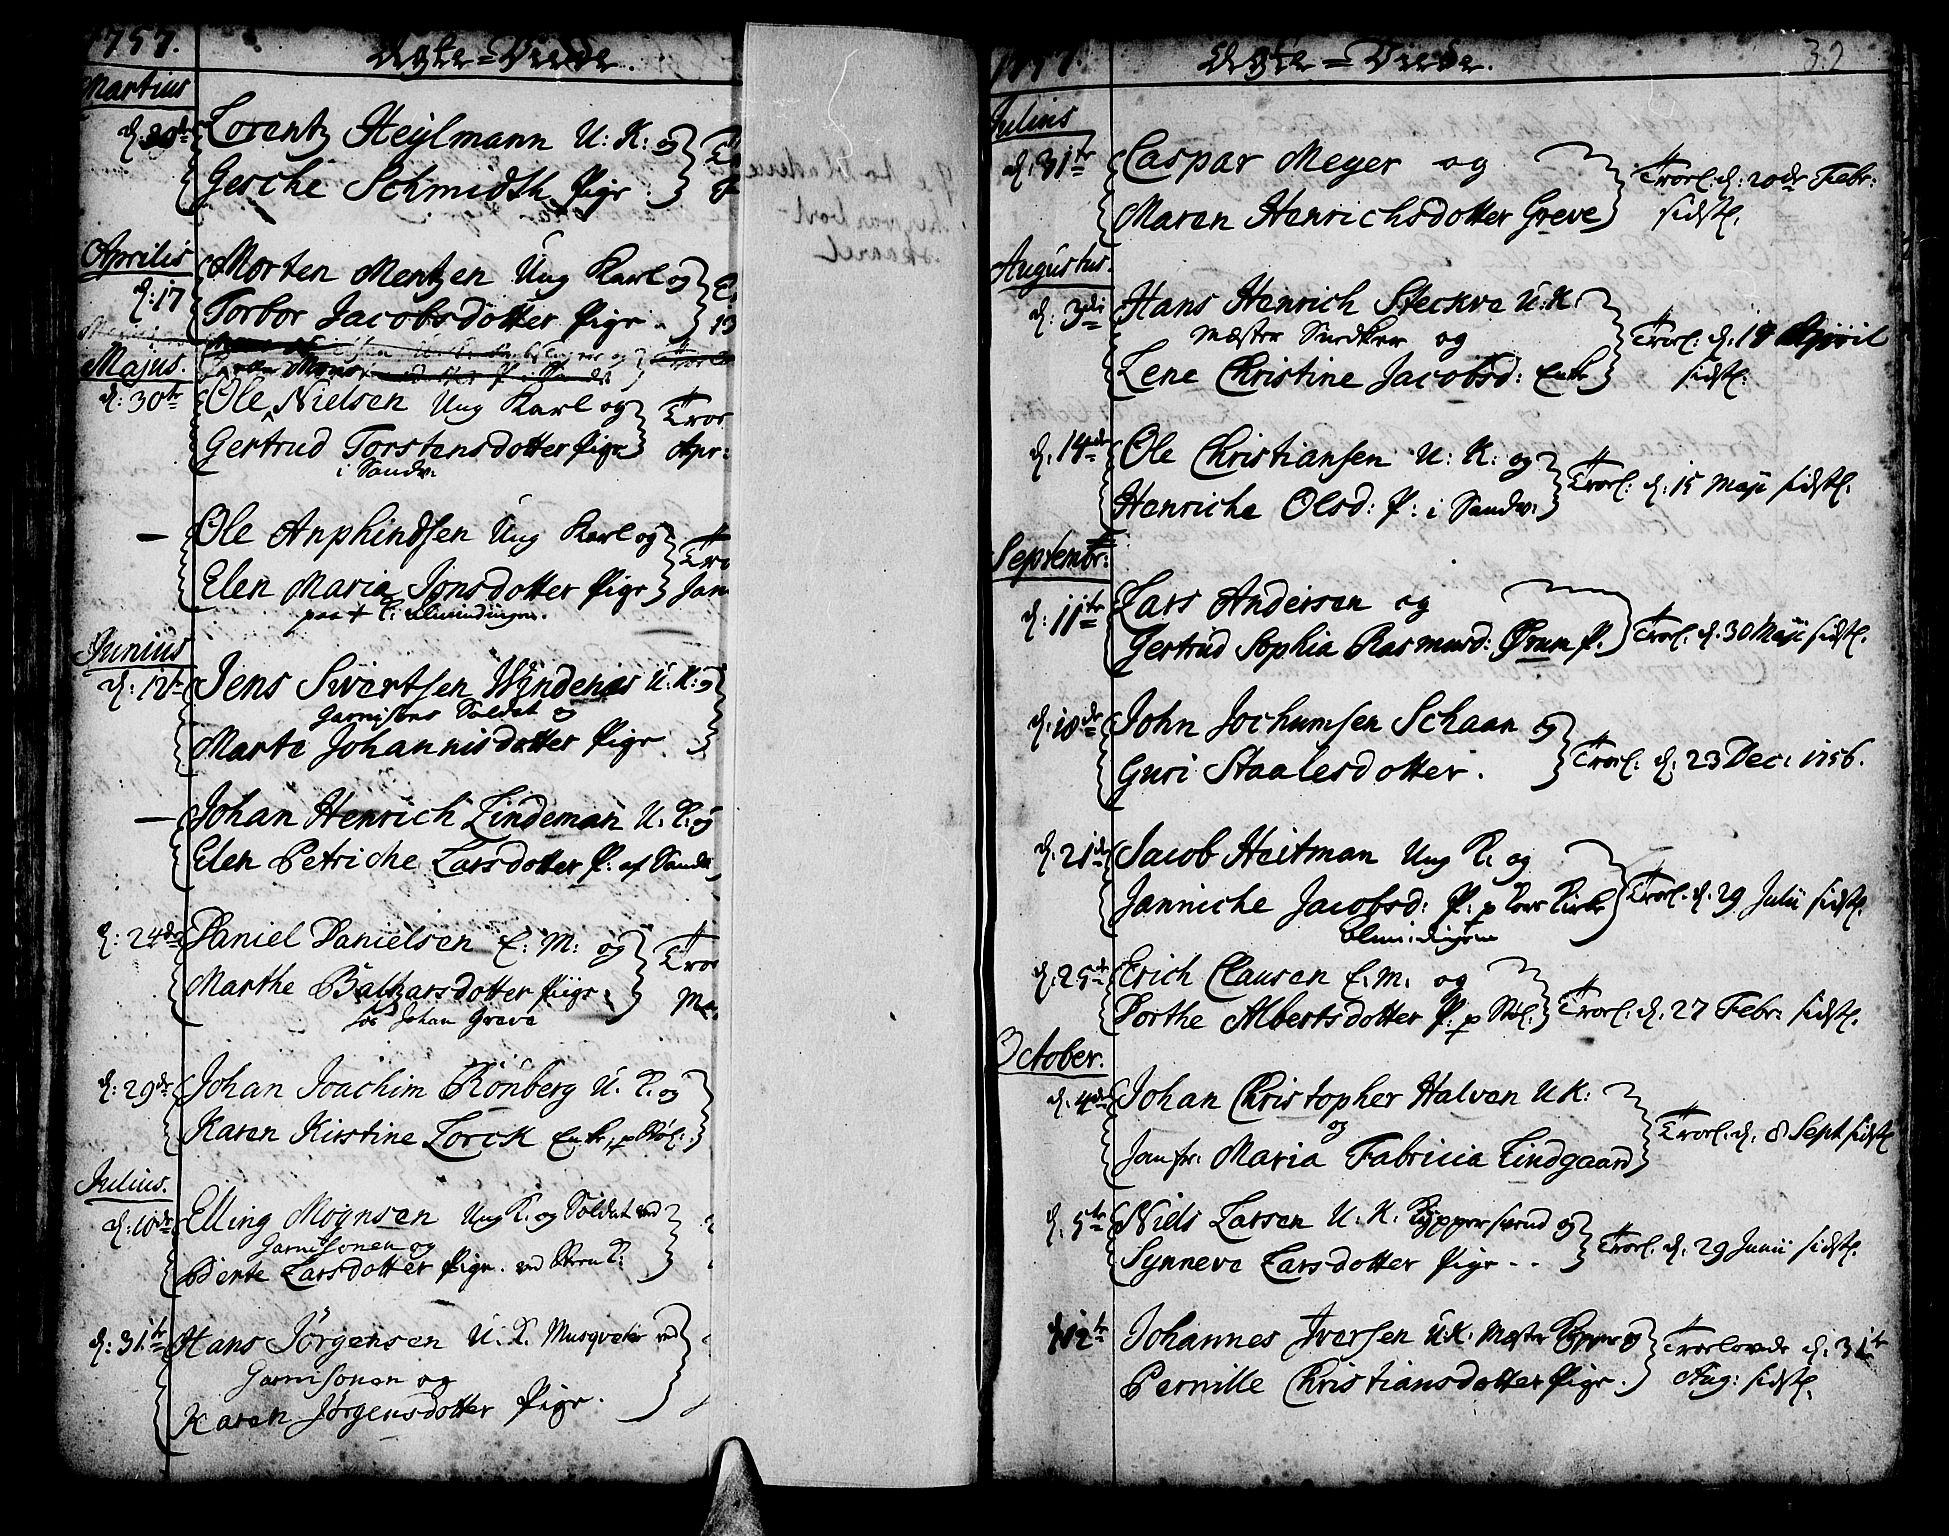 1757.
Ægte-Viede.
Martius
d: 20de Lorentz Heylmann U: K: og
Gesche Schmidth Pige.
Aprilis
d: 17 Morten Mentzen Ung Karl og
Torbor Jacobsdotter Pige.
13
Majus.
d: 30te Ole Nielsen Ung Karl og
Trol
Gertrud Torstensdotter Pige
Apr:
i Sandv:
— Ole Anphindsen Ung Karl og
Tro
Elen Maria Jonsdotter Pige
Jan
paa
Junius
d: 12te Jens Svertsen Windenæs U: K: og
Garnisons Soldat og
Marte Johannisdotter Pige
— Johan Henrich Lindeman U. K: og
Elen Petriche Larsdotter P: af Sandv
d: 24de Daniel Danielsen E: M: og
Trol
Marthe Baltzarsdotter Pige.
Ma
hos Johan Greve
d: 29de Johan Joachim Rönberg U. K. og
Karen Kirstine Lorck Enke, p Støl:
Julius.
d: 10de Elling Mognsen Ung K. og Soldat ved
Garnisonen og
Bente Larsdotter Pige. ved
d: 31te Hans Jörgensen U. K. Musqveter ved
Garnisonen og
Karen Jörgensdotter Pige.
1757.
Ægte-Viede.
32
Julius
d: 31te Caspar Meyer og
Trol: d: 20de Febr:
Maren Henrichsdotter Greve
sidstl.
Augustus.
d: 3die Hans Henrich Steckve U: K:
Mæster Snedker og
Trol: d: 18 April
Lene Christine Jacobsd: Enke
sidstl:
d. 14de Ole Christiansen U: K: og
Trol: d: 15 Maji sidstl.
Henriche Olsd: P: i Sandv:
Septembr:
d: 11te Lars Andersen og
Trol. d. 30 Maji sidstl.
Gertrud Sophia Rasmusd: Ørum P.
d: 18de John Jochumsen Schaan og
Trol. d. 23 Dec: 1756.
Guri Staalesdotter.
d. 21de Jacob Heitman Ung K. og
Trol. d. 29 Julii sidstl.
Janniche Jacobsd: P: p
Alminding
d. 25te Erich Clausen E. M. og
Trol. d. 27 Febr: sidstl.
Dorthe Albertsdotter P: p Støl:
October.
d. 4de Johan Christopher Halven U K:
og
Trol. d. 8 Sept sidstl
Jomfr. Maria Fabricia Lindgaard
d. 5te Niels Larsen U. K. Kypper svend og
Trol. d. 29 Junii sidstl.
Synneve Larsdotter Pige - -
d 12te Johannes Iversen U. K. Mæster Kypper og
Trolovede d. 31te
Pernille Christiansdotter Pige.
Aug: sidstl.